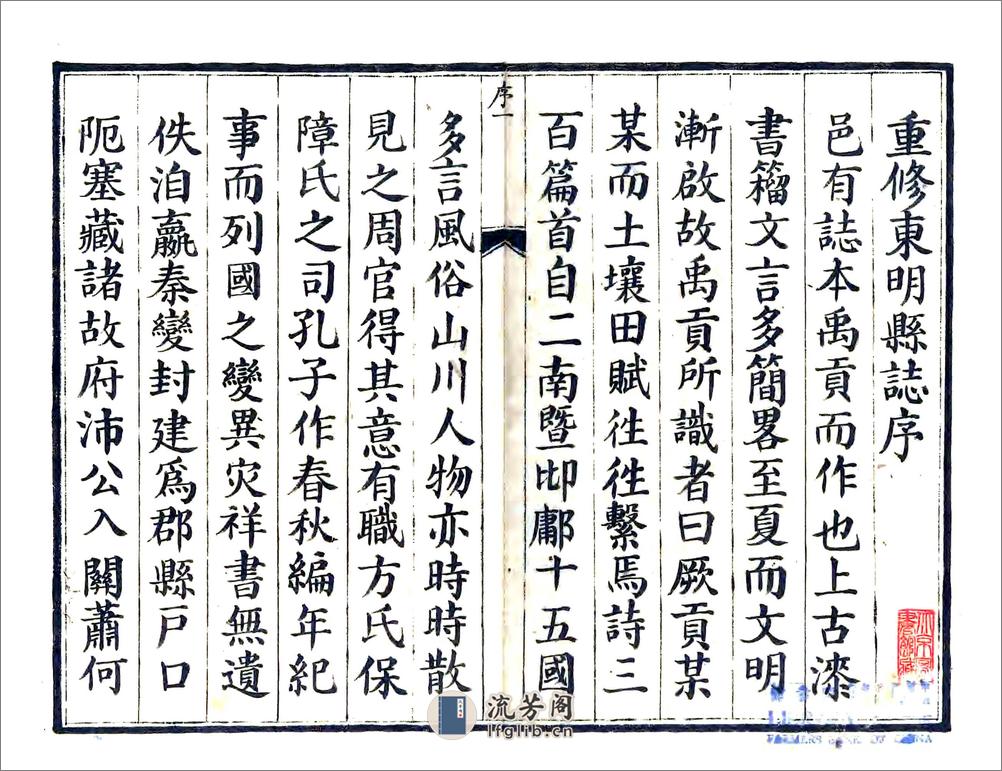 重修東明縣誌序
邑有誌本禹貢而作也上古漆
書籀文言多簡畧至夏而文明
漸啟故禹貢所識者曰厥貢某
某而土壤田賦徃徃繫焉詩三
百篇首自二南暨邶鄘十五國
序一
多言風俗山川人物亦時時散
見之周官得其意有職方氏保
障氏之司孔子作春秋編年紀
事而列國之變異灾祥書無遺
佚洎嬴秦變封建爲郡縣戸口
阨塞藏諸故府沛公入關蕭何
流芳阁
lfglib.cn